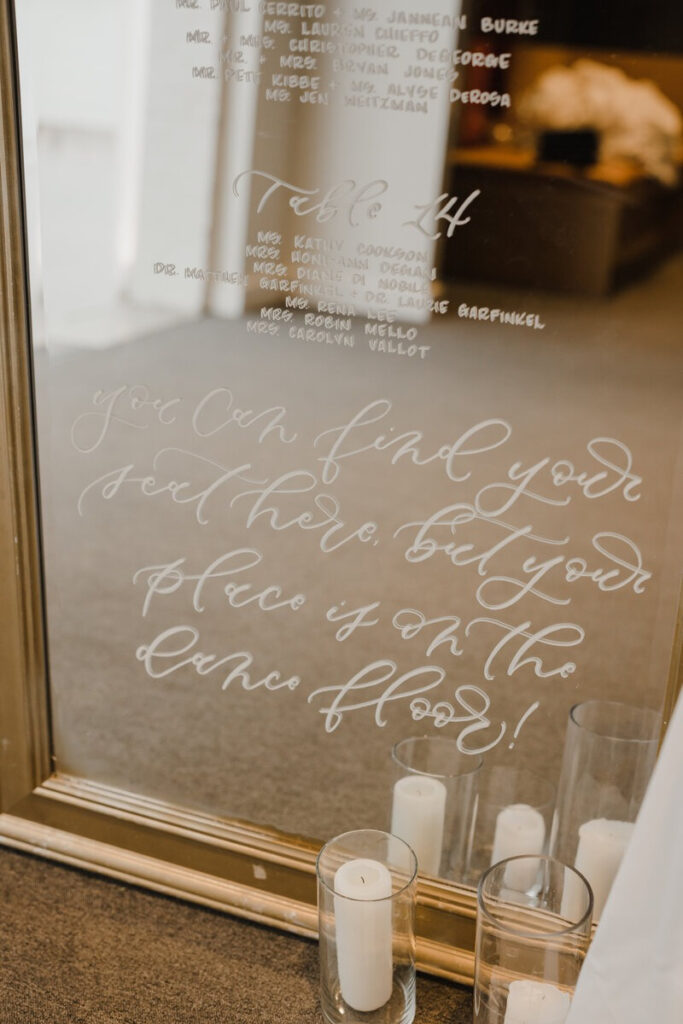 MR. PAUL CERRITO + MS. JANNEAN BURKE
MS. LAUREN CHIEFFO
MR. + MRS. CHRISTOPHER DEGEORGE
MR. + MRS. BRYAN JONES
MR. PETE KIBBE + MS. ALYSE DEROSA
MS. JEN WEITZMAN
Table 14
MS. KATHY COOKSON
MRS. DEGIAN
MRS. DIANE DI NOBILE
DR. MATTHEW GARFINKEL + DR. LAURIE GARFINKEL
MS. RENA LEE
MRS. ROBIN MELLO
MRS. CAROLYN VALLOT
you can find your
seat here, but your
place is on the
dance floor!